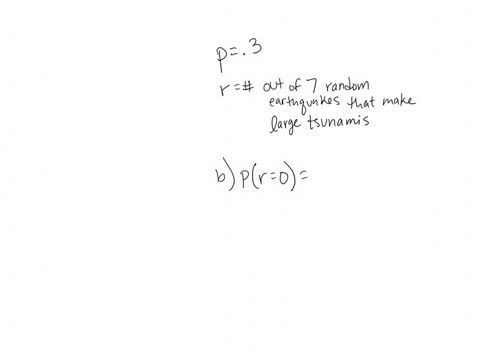 p=.3
r=# out of 7 random
earthquakes that make
large tsunamis
b) p(r=0)=